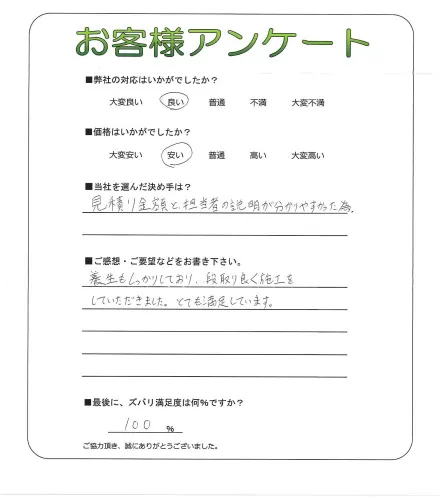 お客様アンケート
■弊社の対応はいかがでしたか？
大変良い 良い 普通 不満 大変不満
■価格はいかがでしたか？
大変安い 安い 普通 高い 大変高い
■当社を選んだ決め手は？
見積り金額と、担当者の説明が分かりやすかった為。
■ご感想・ご要望などをお書き下さい。
養生もしっかりしており、段取り良く施工を
していただきました。とても満足しています。
■最後に、ズバリ満足度は何％ですか？
100 %
ご協力頂き、誠にありがとうございました。